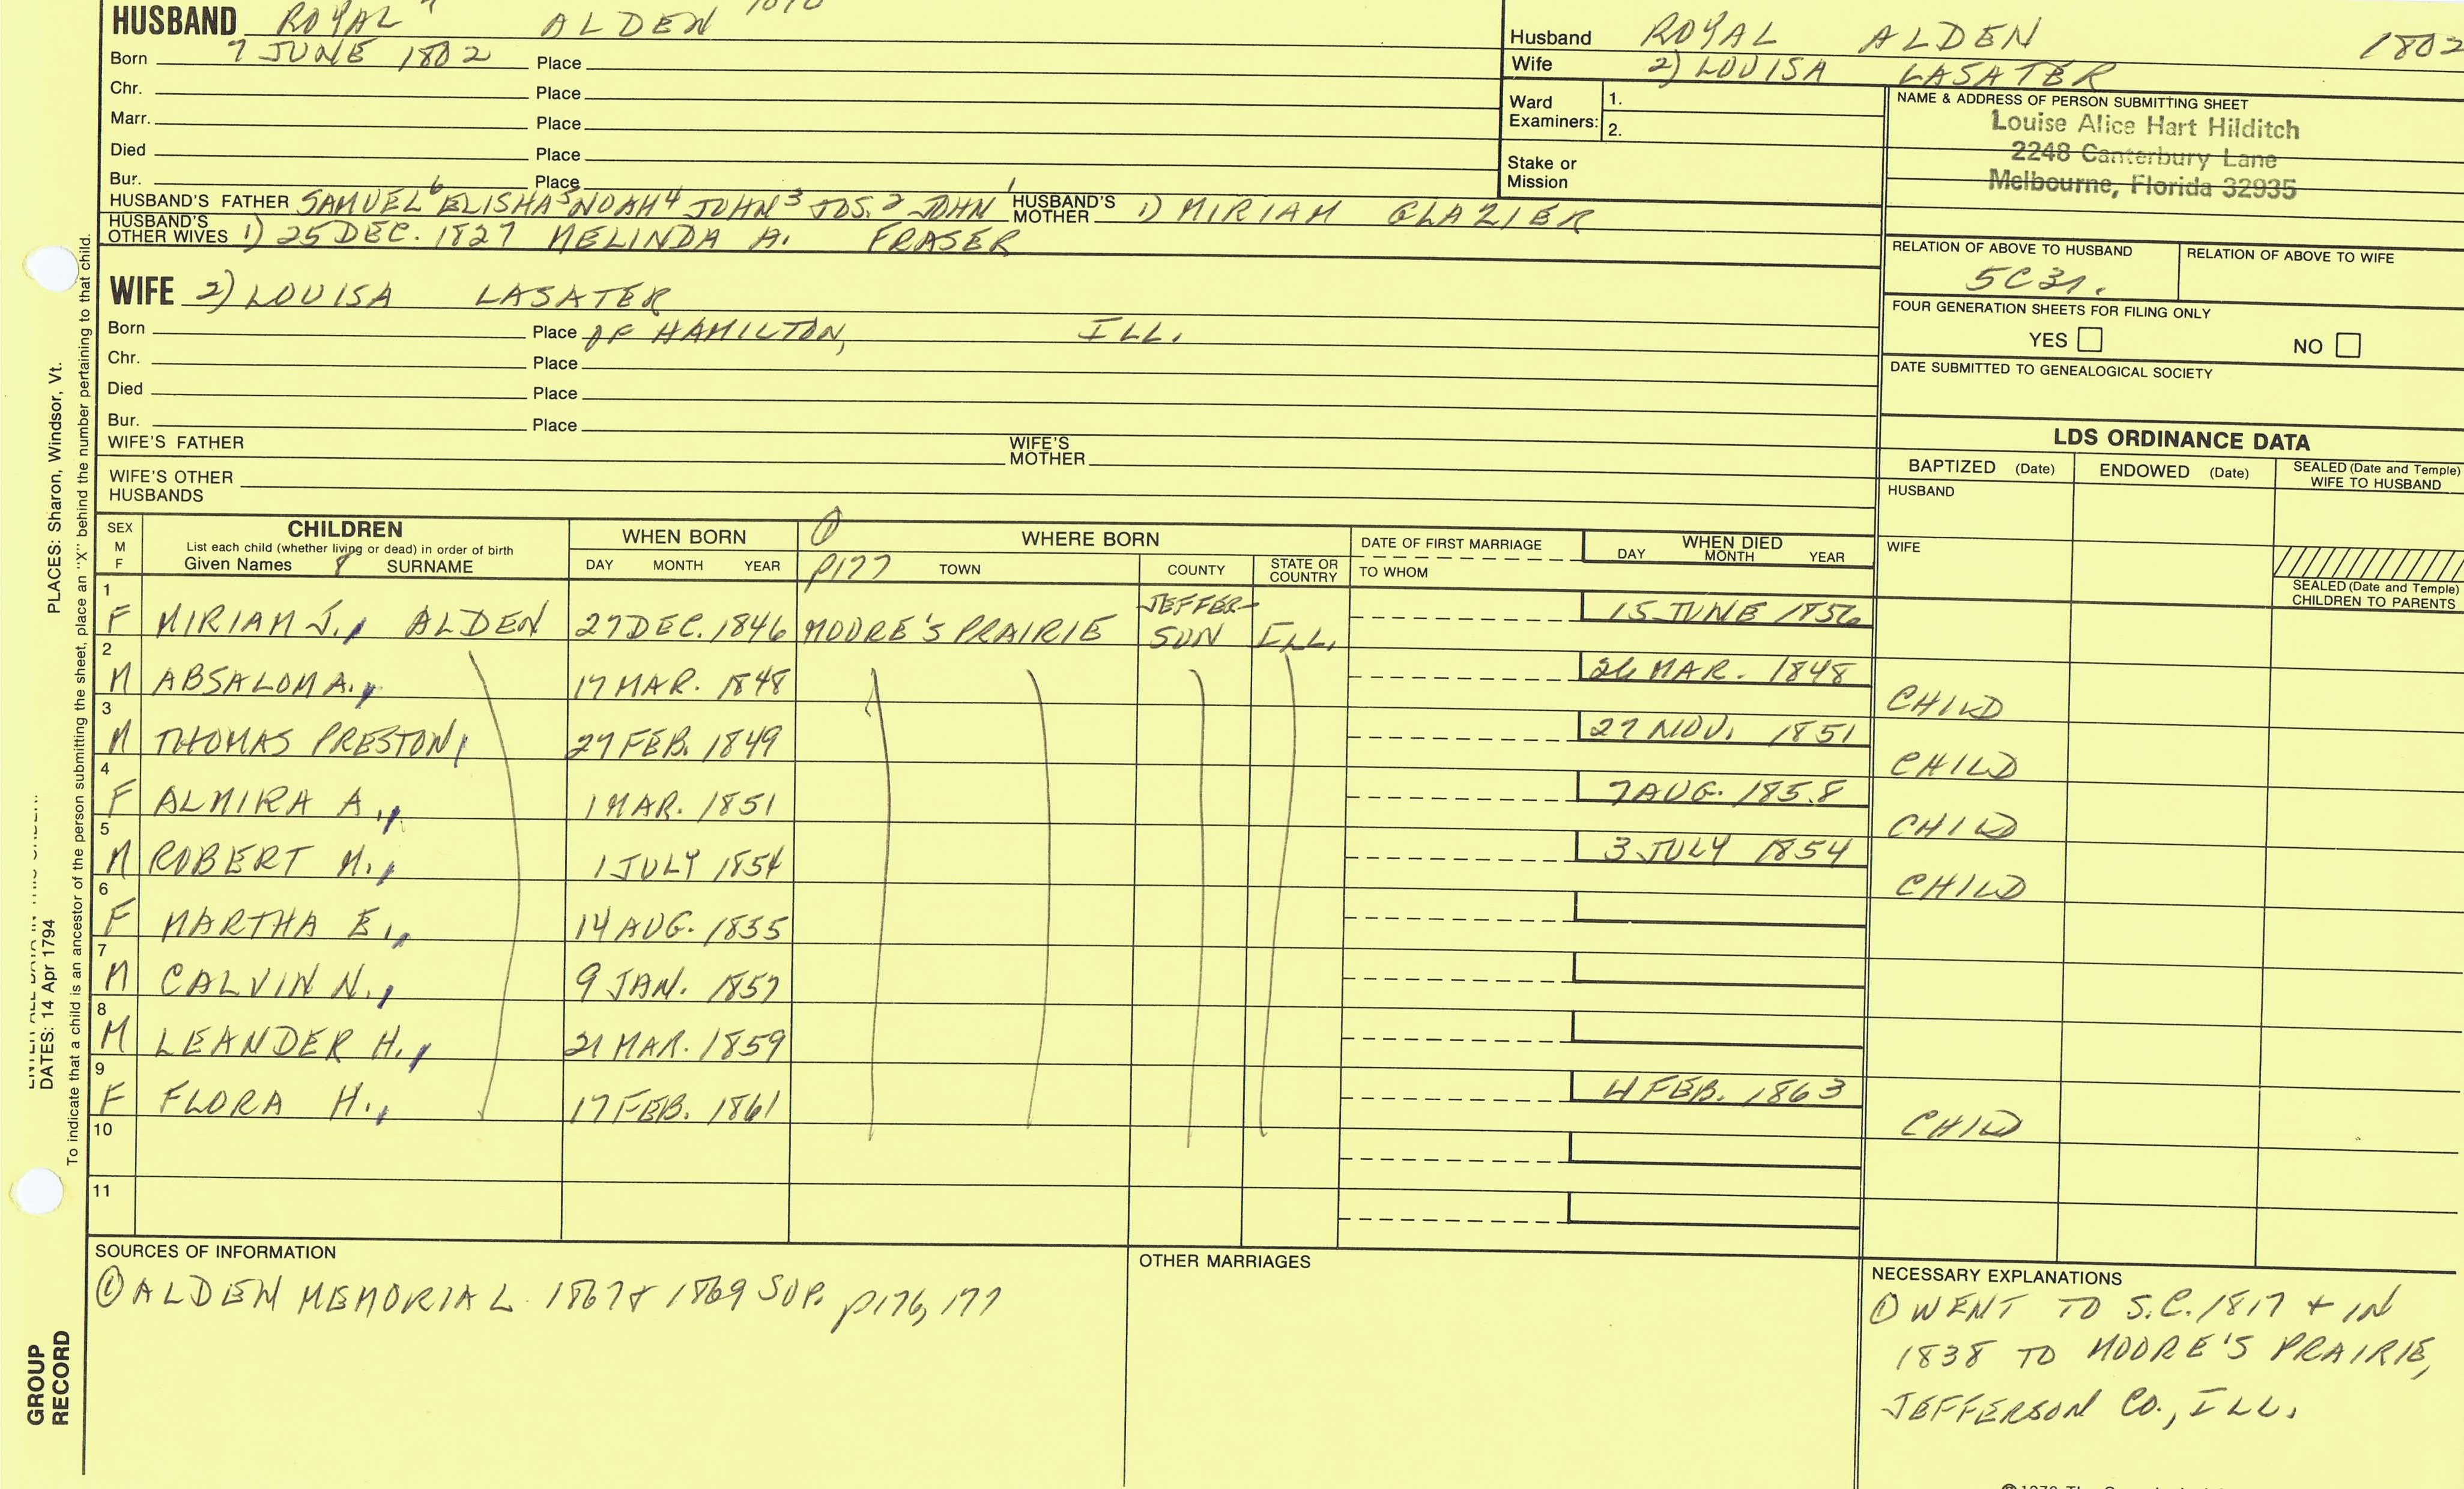 HUSBAND ROYAL 7 ALDEN
Born 7 JUNE 1802 Place
Chr. Place
Marr. Place
Died Place
Bur. Place
HUSBAND'S FATHER SAMUEL 6 ELISHA 5 NOAH 4 JOHN 3 JOS. 2 JOHN 1 HUSBAND'S MOTHER 1) MIRIAM GLAZIER
HUSBAND'S OTHER WIVES 1) 25 DEC. 1827 MELINDA A. FRASER
WIFE 2) LOUISA LASATER
Born Place OF HAMILTON, ILL.
Chr. Place
Died Place
Bur. Place
WIFE'S FATHER WIFE'S MOTHER
WIFE'S OTHER HUSBANDS
Husband ROYAL ALDEN 1802
Wife 2) LOUISA LASATER
Ward Examiners: 1.
2.
Stake or Mission
NAME & ADDRESS OF PERSON SUBMITTING SHEET
Louise Alice Hart Hilditch
2248 Canterbury Lane
Melbourne, Florida 32935
RELATION OF ABOVE TO HUSBAND RELATION OF ABOVE TO WIFE
FOUR GENERATION SHEETS FOR FILING ONLY
YES NO
DATE SUBMITTED TO GENEALOGICAL SOCIETY
LDS ORDINANCE DATA
BAPTIZED (Date) ENDOWED (Date) SEALED (Date and Temple) WIFE TO HUSBAND
HUSBAND
WIFE
SEALED (Date and Temple) CHILDREN TO PARENTS
SEX M F CHILDREN WHEN BORN ① WHERE BORN DATE OF FIRST MARRIAGE WHEN DIED
List each child (whether living or dead) in order of birth
Given Names 8 SURNAME DAY MONTH YEAR P177 TOWN COUNTY STATE OR COUNTRY TO WHOM DAY MONTH YEAR
1 F MIRIAM J., ALDEN 27 DEC. 1846 MOORE'S PRAIRIE JEFFER-SON ILL. 15 JUNE 1856
2 M ABSALOM A., 17 MAR. 1848 26 MAR. 1848 CHILD
3 M THOMAS PRESTON, 27 FEB. 1849 27 NOV. 1851 CHILD
4 F ALMIRA A., 1 MAR. 1851 7 AUG. 1858 CHILD
5 M ROBERT M., 1 JULY 1854 3 JULY 1854 CHILD
6 F MARTHA E., 14 AUG. 1855
7 M CALVIN N., 9 JAN. 1857
8 M LEANDER H., 21 MAR. 1859
9 F FLORA H., 17 FEB. 1861 4 FEB. 1863 CHILD
10
11
SOURCES OF INFORMATION
① ALDEN MEMORIAL 1867 & 1869 SUP. p176, 177
OTHER MARRIAGES
NECESSARY EXPLANATIONS
① WENT TO S.C. 1817 + IN
1838 TO MOORE'S PRAIRIE,
JEFFERSON CO., ILL.
PLACES: Sharon, Windsor, Vt.
DATES: 14 Apr 1794
To indicate that a child is an ancestor of the person submitting the sheet, place an "X" behind the number pertaining to that child.
GROUP
RECORD